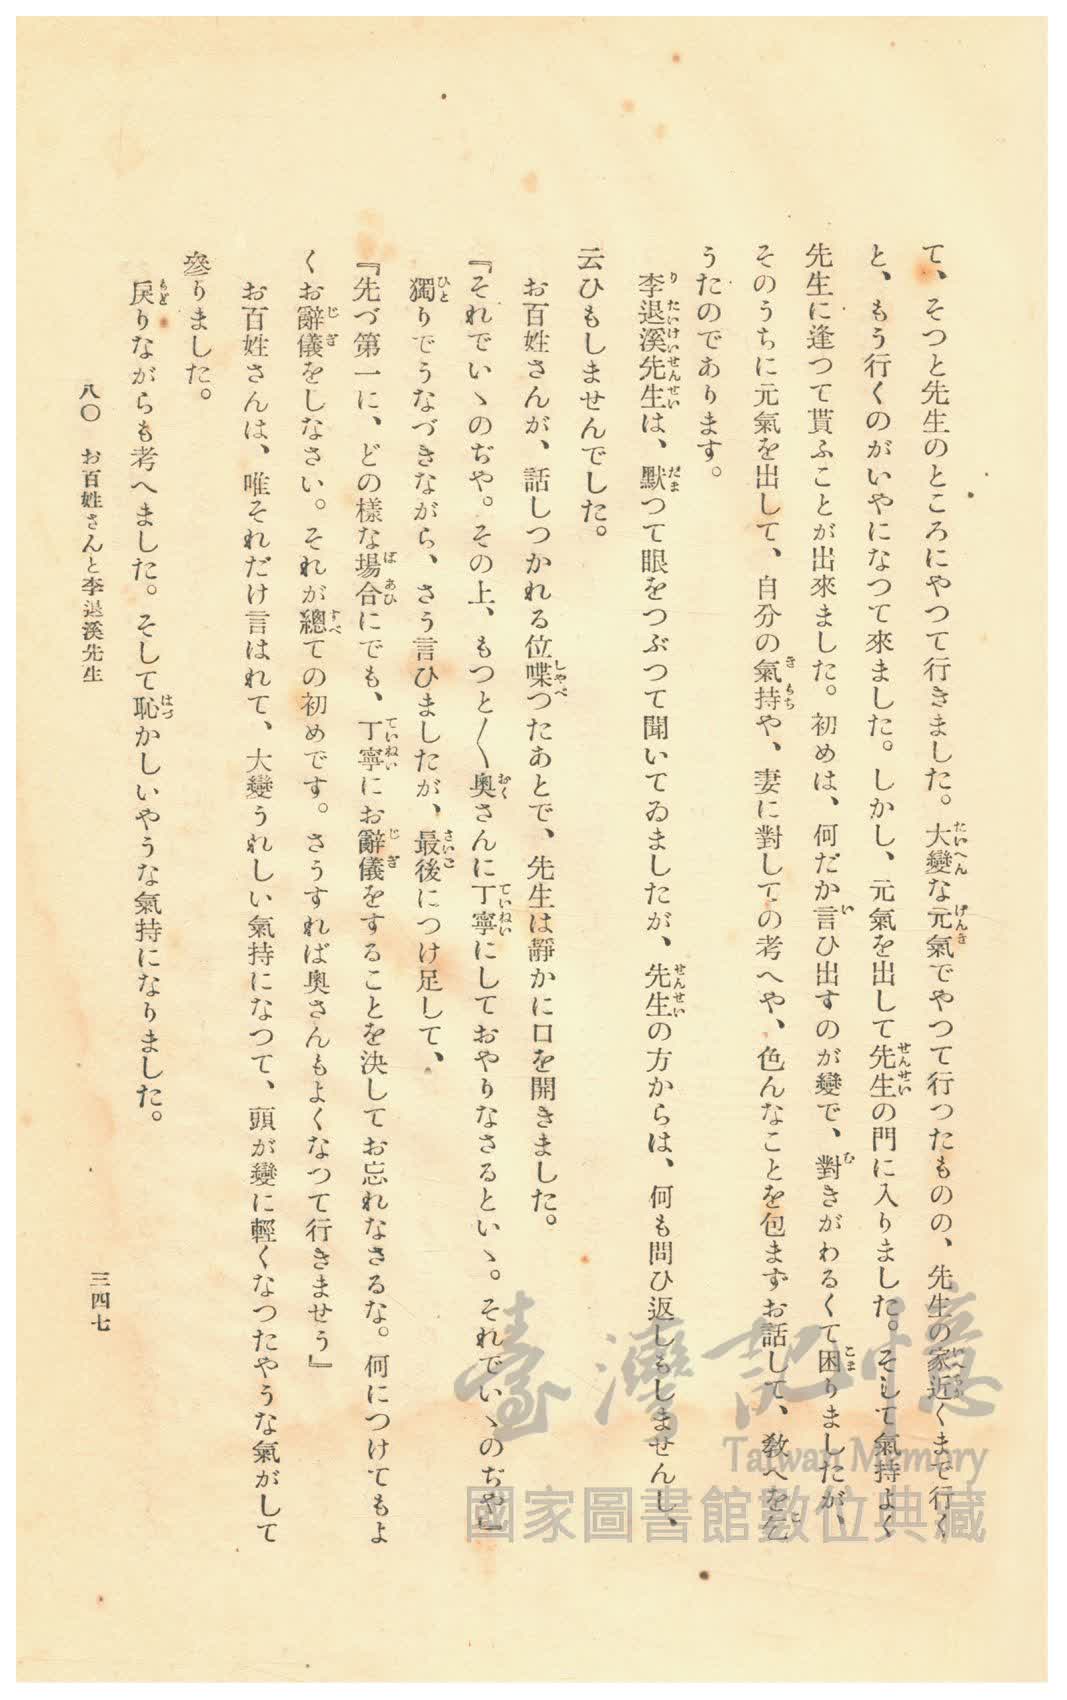 て、そつと先生のところにやつて行きました。大變な元氣でやつて行つたものの、先生の家近くまで行く
と、もう行くのがいやになつて來ました。しかし、元氣を出して先生の門に入りました。そして氣持よく
先生に逢つて貰ふことが出來ました。初めは、何だか言ひ出すのが變で、對きがわるくて困りましたが、
そのうちに元氣を出して、自分の氣持や、妻に對しての考へや、色んなことを包まずお話して、敎へを乞
うたのであります。
李退溪先生は、默つて眼をつぶつて聞いてゐましたが、先生の方からは、何も問ひ返しもしませんし、
云ひもしませんでした。
お百姓さんが、話しつかれる位喋つたあとで、先生は靜かに口を開きました。
『それでいゝのぢや。その上、もつと〱奧さんに丁寧にしておやりなさるといゝ。それでいゝのぢや』
獨りでうなづきながら、さう言ひましたが、最後につけ足して、
『先づ第一に、どの樣な場合にでも、丁寧にお辭儀をすることを決してお忘れなさるな。何につけてもよ
くお辭儀をしなさい。それが總ての初めです。さうすれば奧さんもよくなつて行きませう』
お百姓さんは、唯それだけ言はれて、大變うれしい氣持になつて、頭が變に輕くなつたやうな氣がして
參りました。
戻りながらも考へました。そして恥かしいやうな氣持になりました。
八〇 お百姓さんと李退溪先生
三四七
臺灣記憶
Taiwan Memory
國家圖書館數位典藏